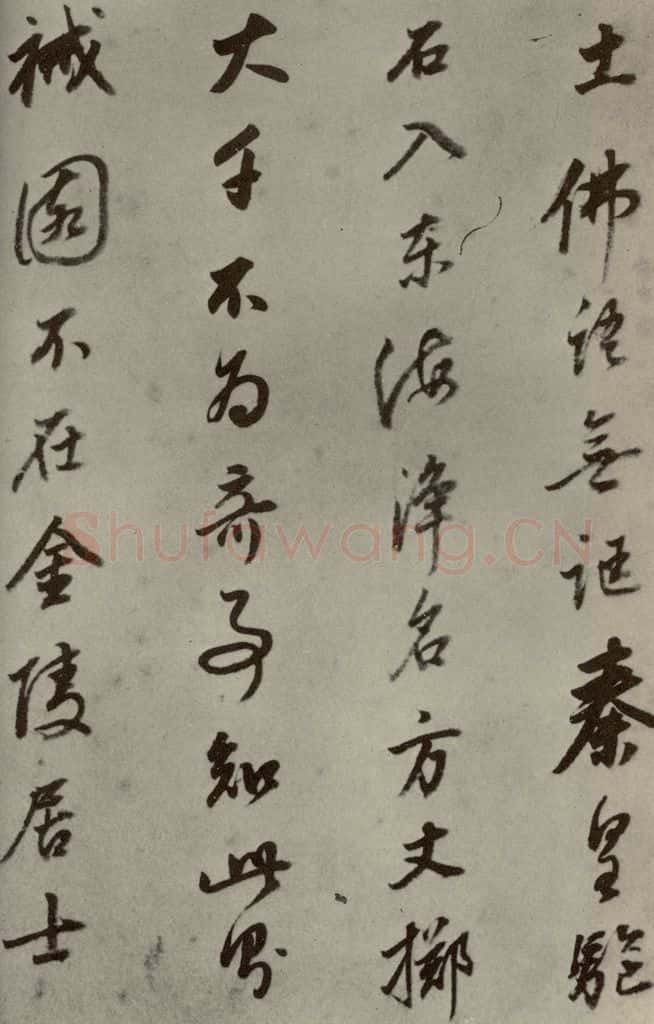 土佛語無誑秦皇驅
石入東海淨名方丈擲
大千不為奇事知此則
祴園不在金陵居士
Shufawang.CN